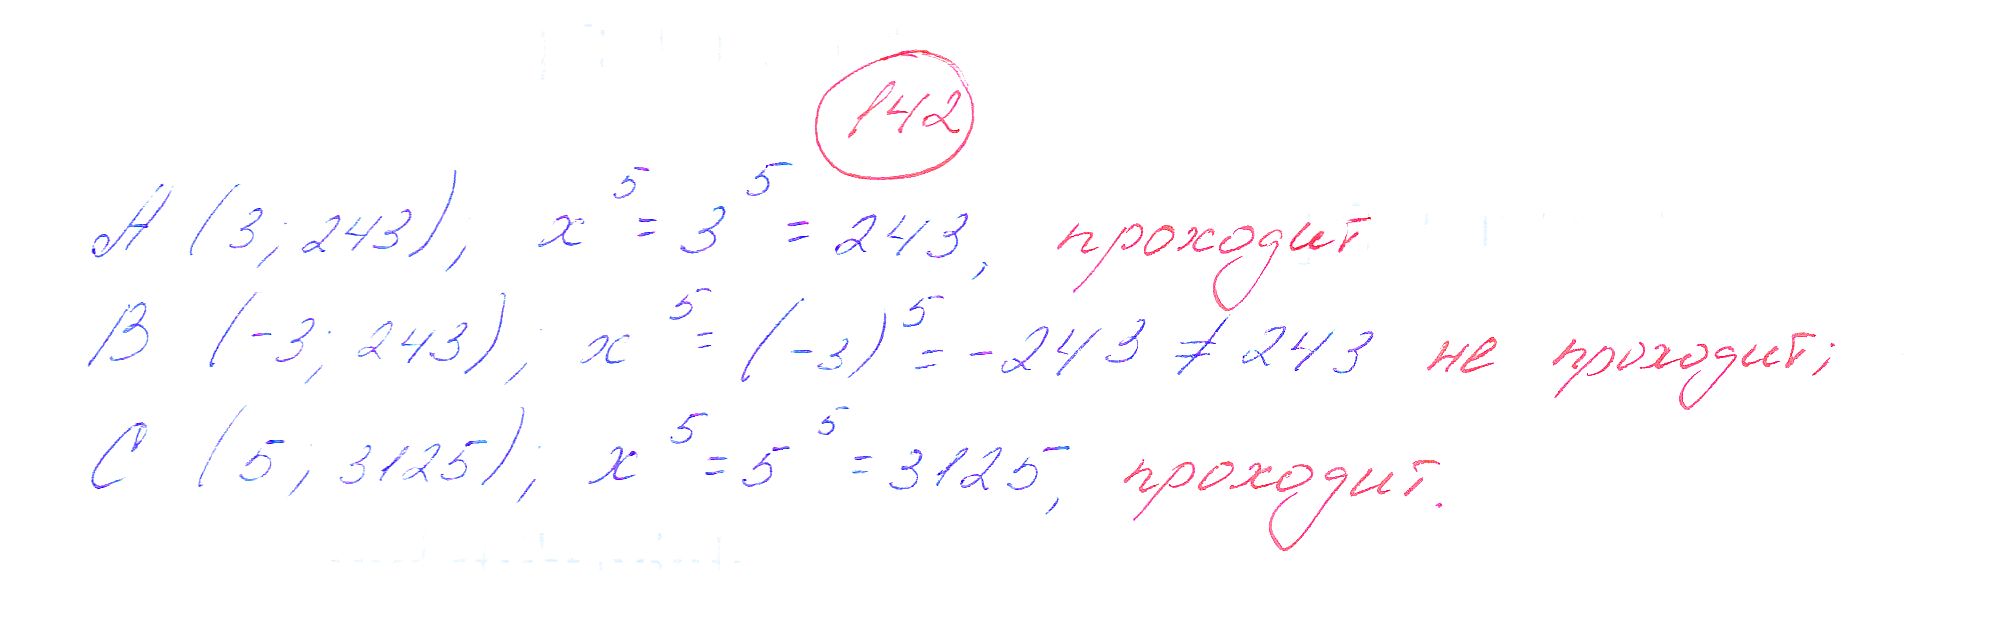 142
A (3; 243); x⁵ = 3⁵ = 243, проходит
B (-3; 243); x⁵ = (-3)⁵ = -243 ≠ 243 не проходит;
C (5; 3125); x⁵ = 5⁵ = 3125, проходит.